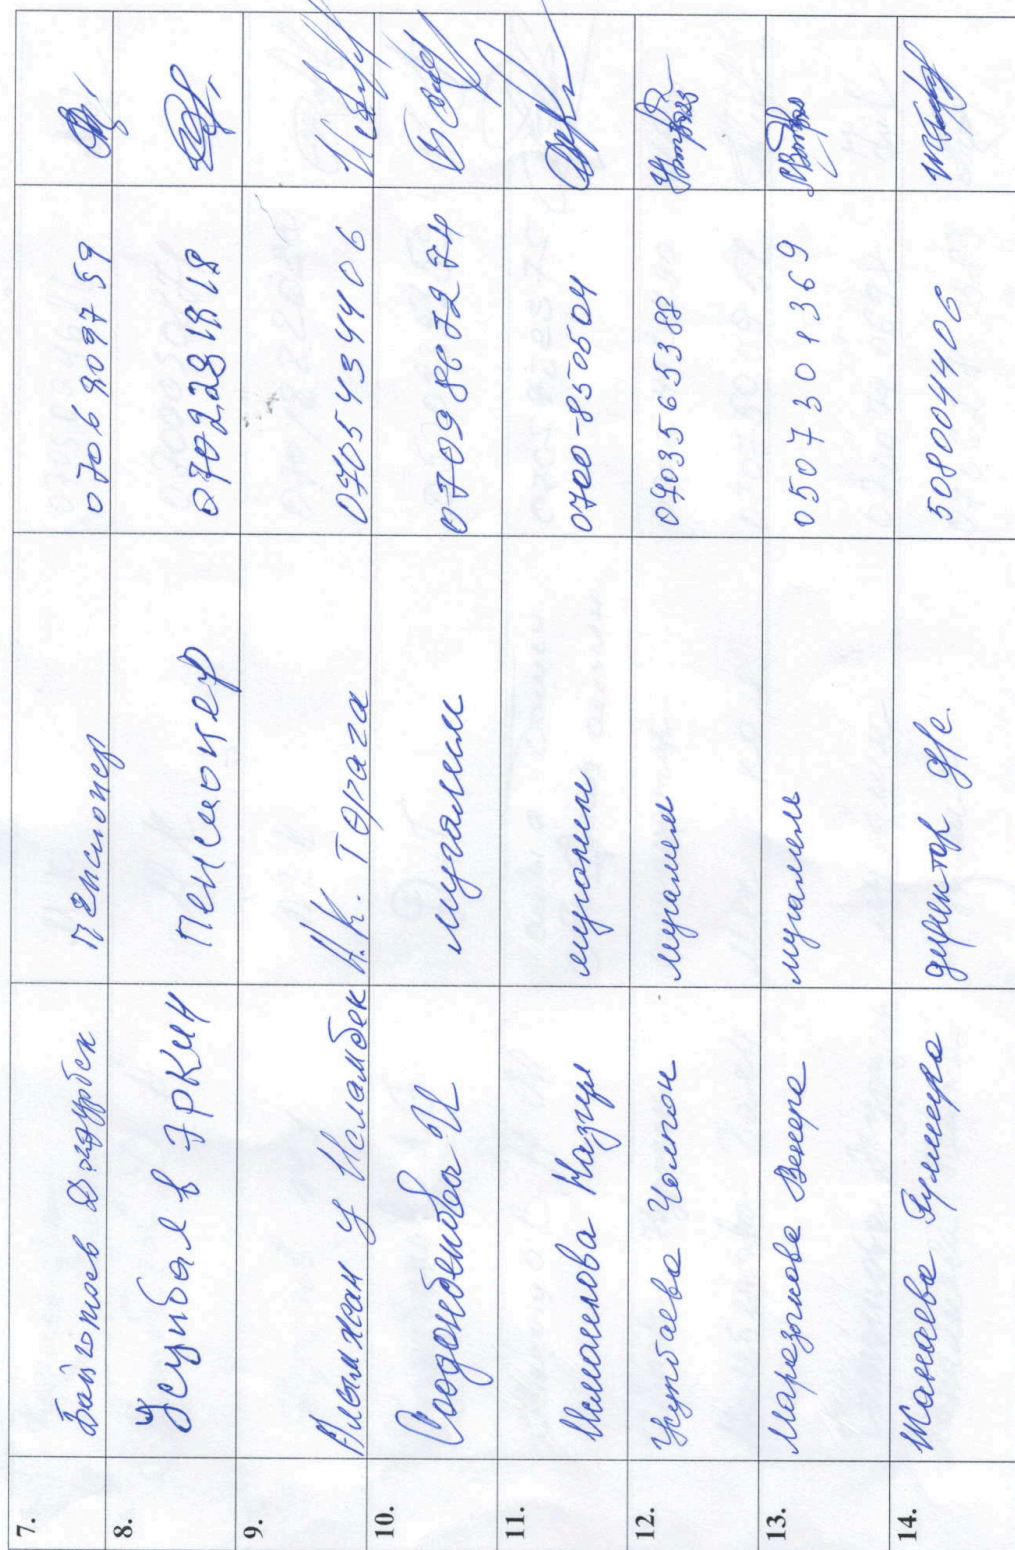 7. Байгөтөев Джурбек Пенсионер 0706909759
8. Усубалв Эркин Пенсионер 0702231818
9. Алымжан у Исламбек А.К. Төрага 0705434406
10. Сооданбекова И мугалим 0709807274
11. Исмаилова Назгул мугалим 0700-850504
12. Укупбаева Чолпон мугалим 0703565388
13. Маразыкова Венера мугалим 0507301369
14. Жанаева Гулмира директор д/с 508004406